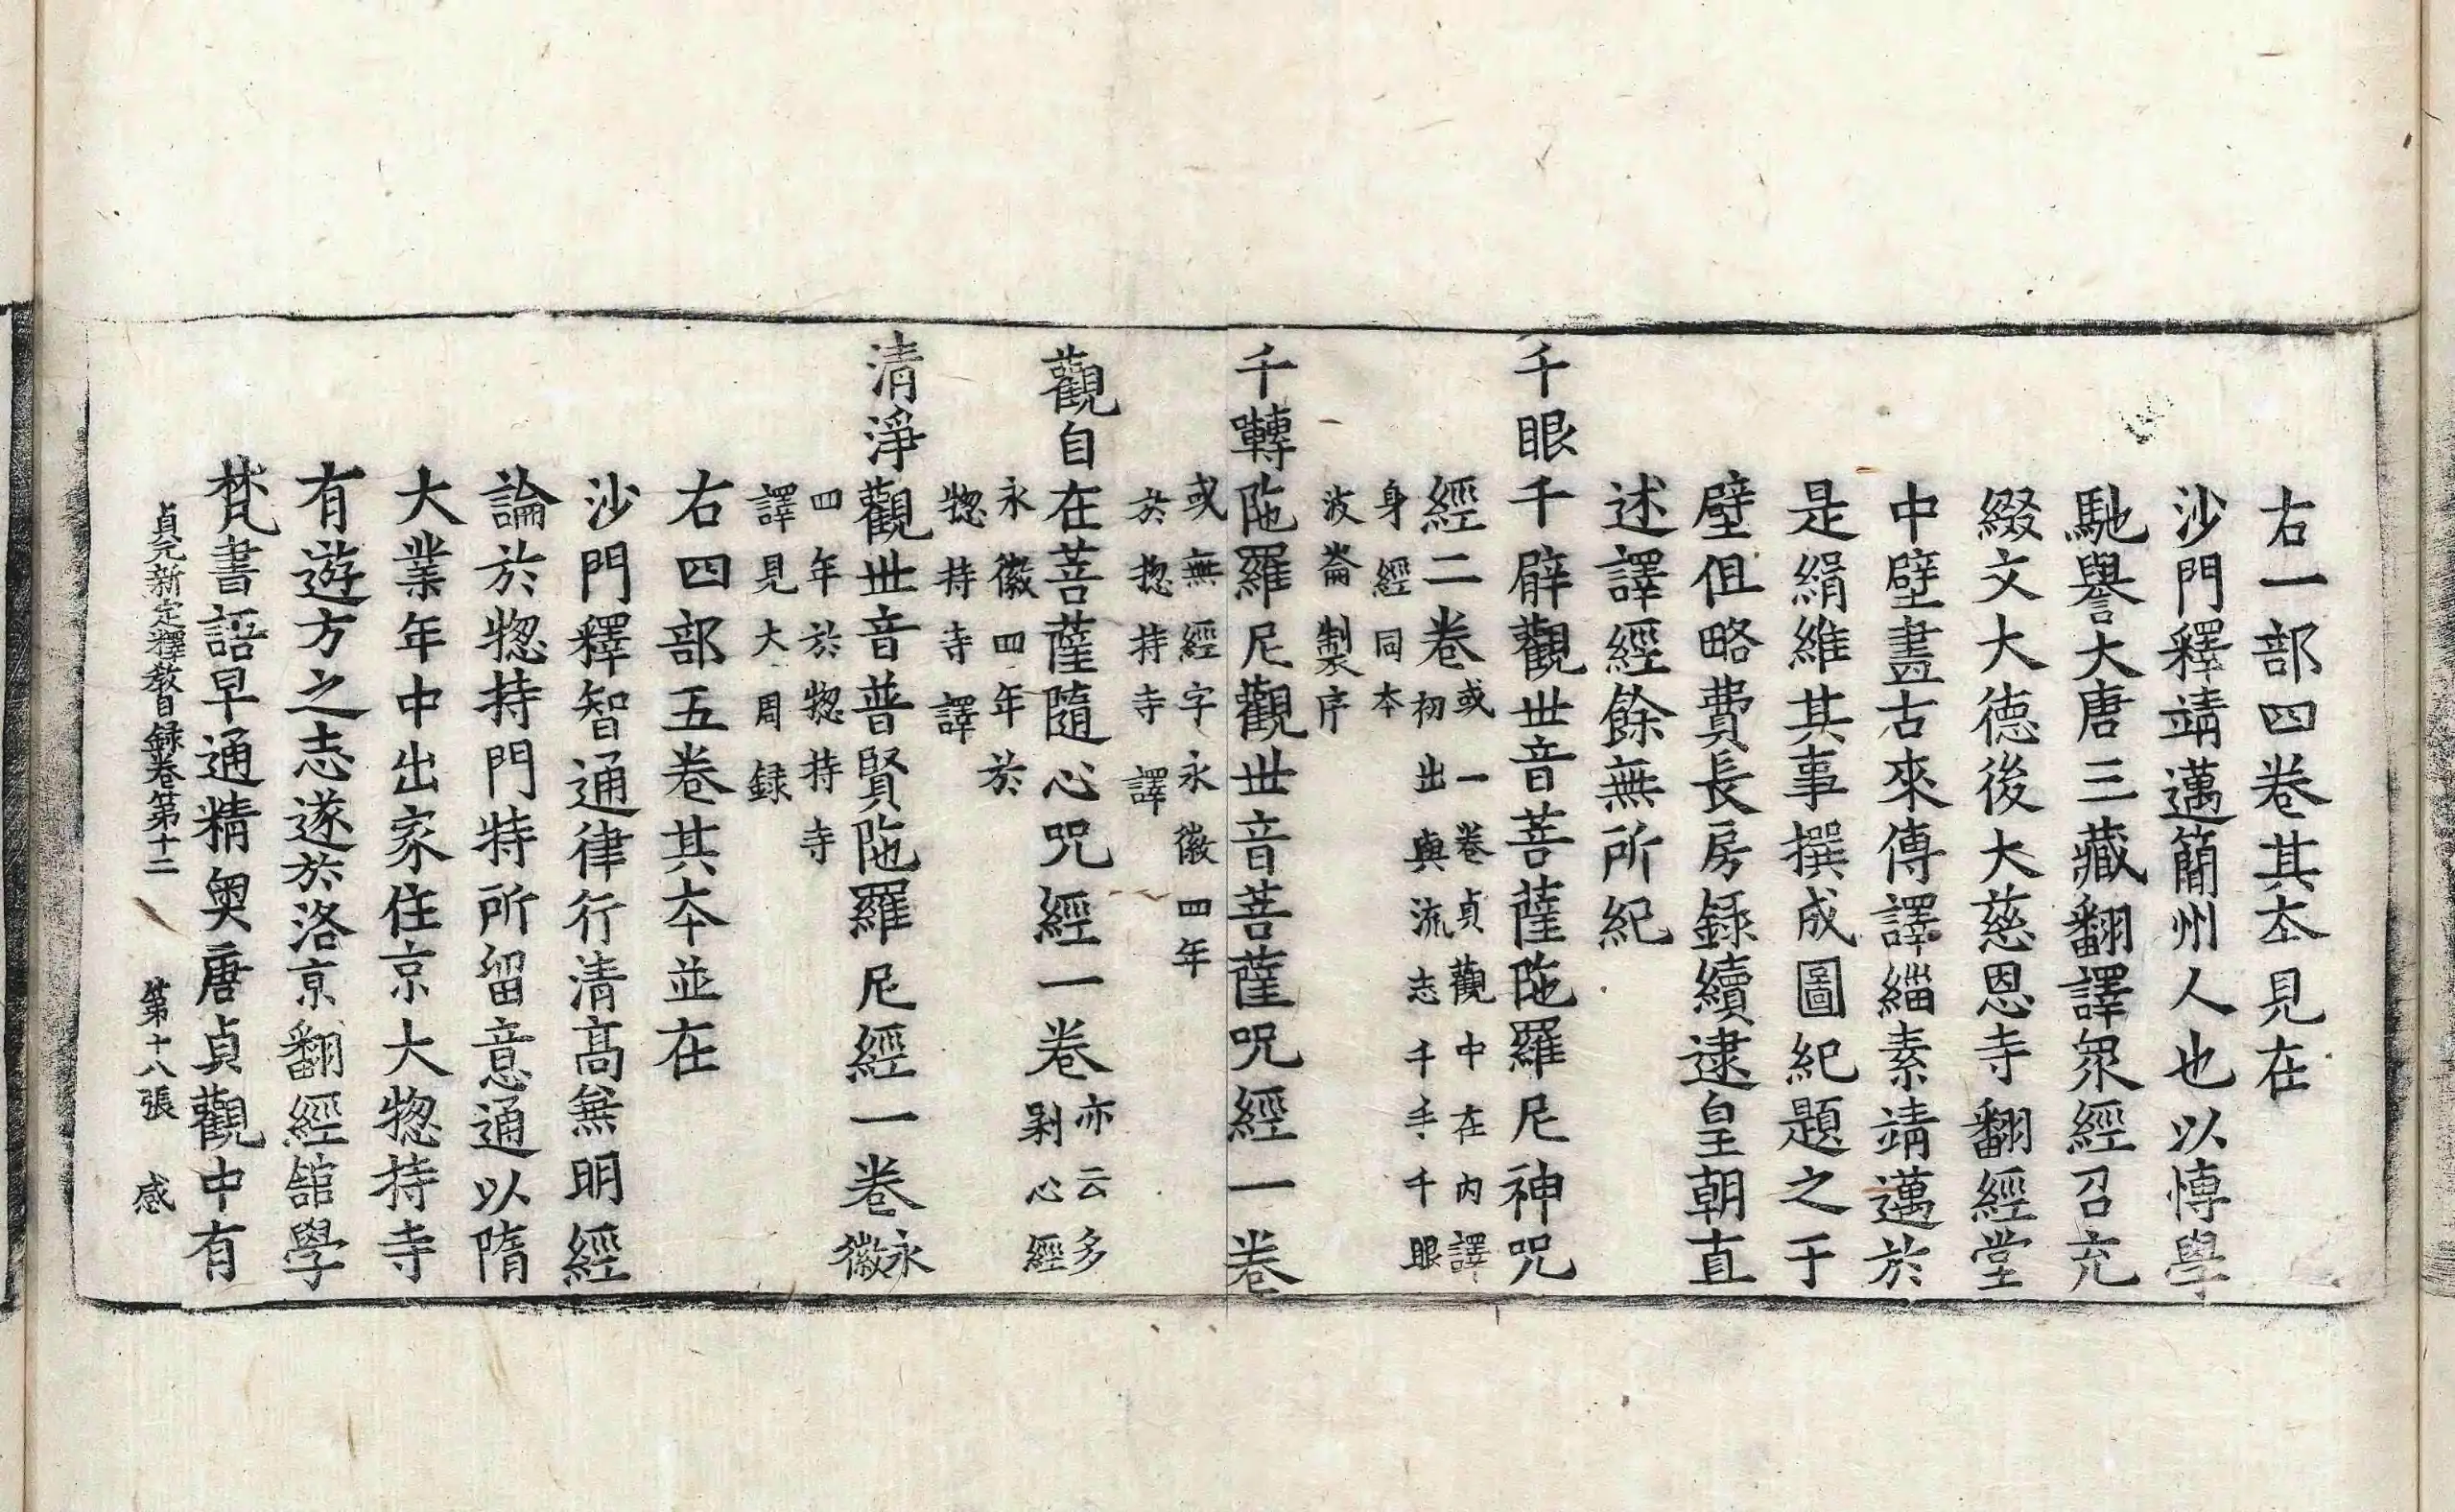 右一部四卷其夲見在
沙門釋靖邁簡州人也以愽學
馳譽大唐三藏翻譯衆經召充
綴文大德後大慈恩寺翻經堂
中壁畫古來傳譯緇素靖邁於
是緝維其事撰成圖紀題之于
壁但略費長房録續逮皇朝直
述譯經餘無所紀
千眼千臂觀世音菩薩陁羅尼神呪
經二卷或一卷貞觀中在內譯
初出與流志千手千眼
身經同本
波崙製序
千囀陁羅尼觀世音菩薩呪經一卷
或無經字永徽四年
於揔持寺譯
觀自在菩薩隨心呪經一卷亦云多
剎心經
永徽四年於
揔持寺譯
清淨觀世音普賢陁羅尼經一卷永
徽
四年於揔持寺
譯見大周録
右四部五卷其夲並在
沙門釋智通律行清髙無明經
論於揔持門特所留意通以隋
大業年中出家住京大揔持寺
有遊方之志遂於洛京翻經舘學
梵書語早通精奧唐貞觀中有
貞元新定釋教目録卷第十二 第十八張 感